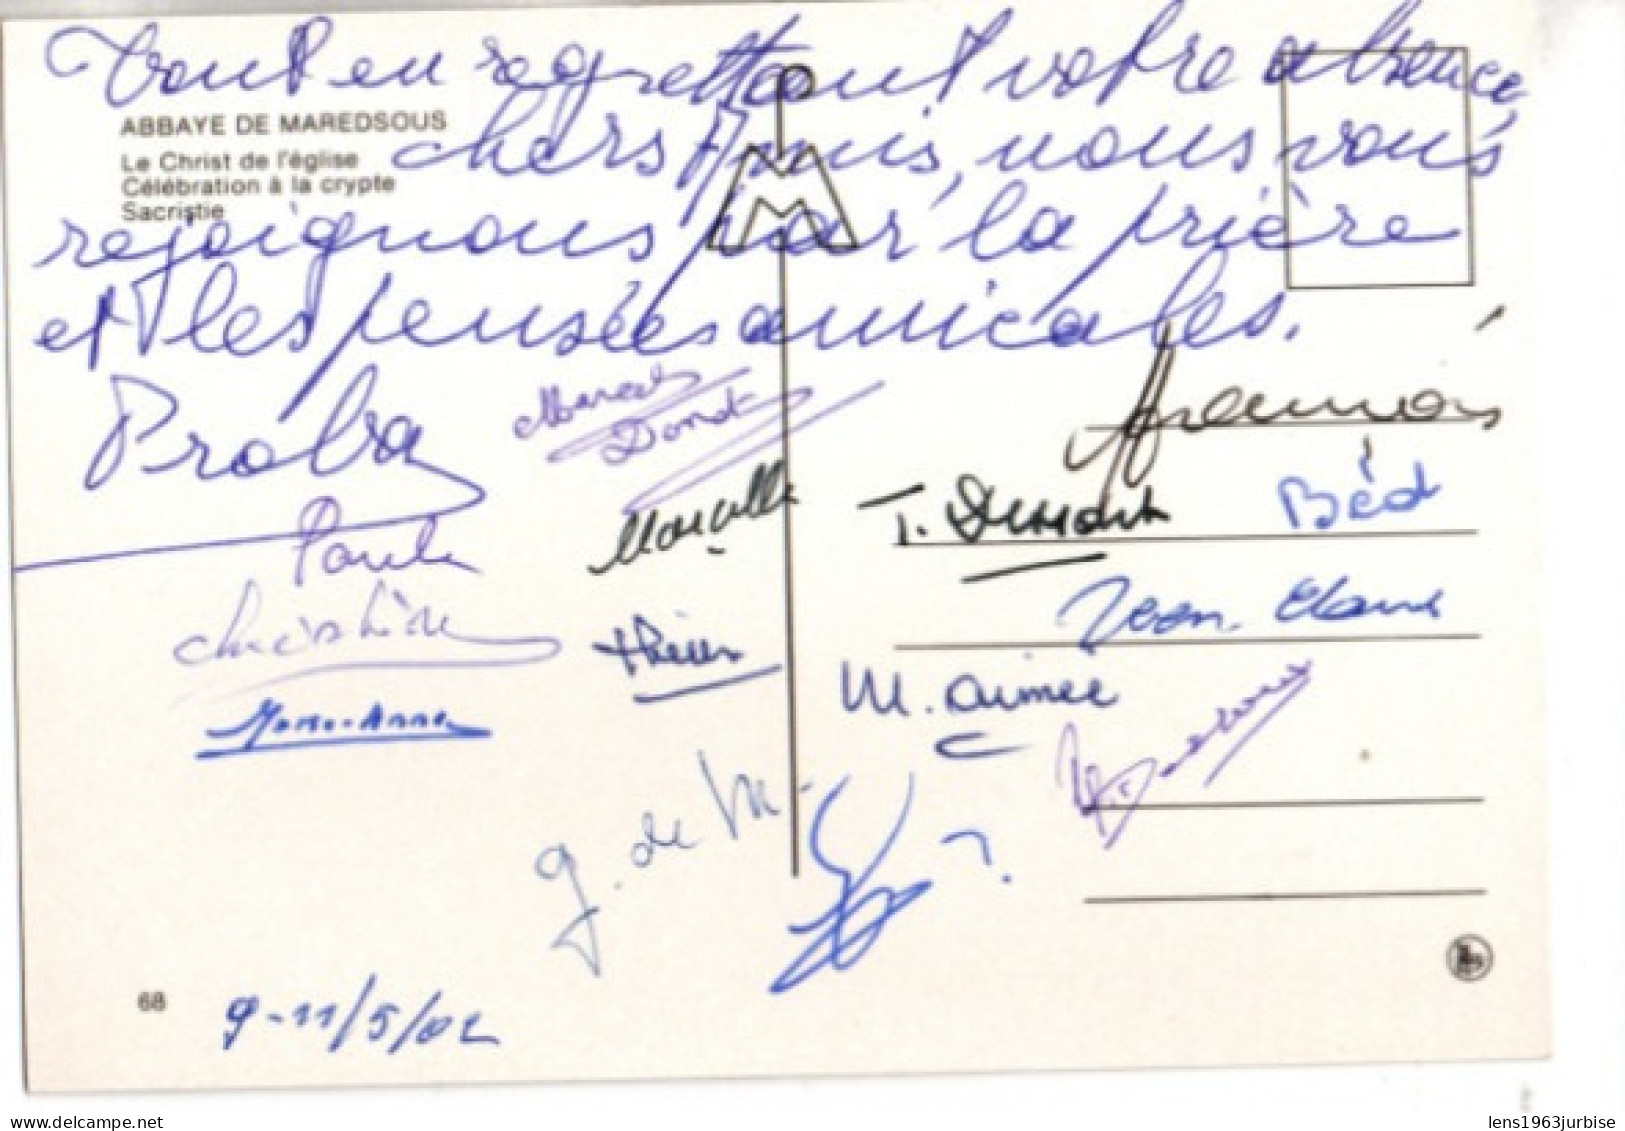 Tout en regrettant votre absence,
ABBAYE DE MAREDSOUS
chers Amis, nous vous
Le Christ de l'église
Célébration à la crypte
Sacristie
rejoignons par la prière
et les pensées amicales.
Proba
Donat
Marcelle
T. Dumont
Béd
Paule
Christine
Jean-Claude
M. Aimée
Marie-Anne
g. de M.
?
68
9-11/5/02
delcampe.net
lens1963jurbise